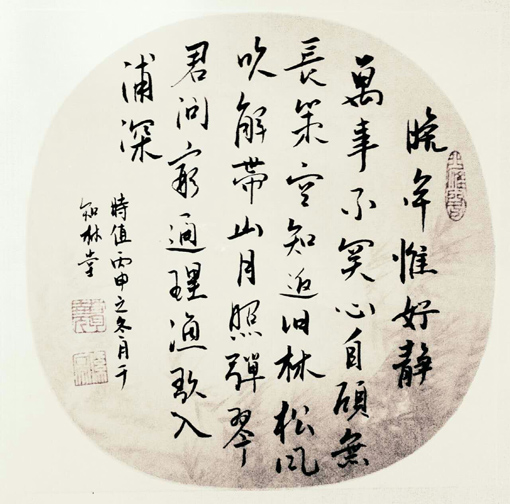 晚年惟好静
萬事不関心自顾無
長策空知返旧林松风
吹解带山月照弹琴
君问窮通理渔歌入
浦深
時值丙申之冬月于
知林堂